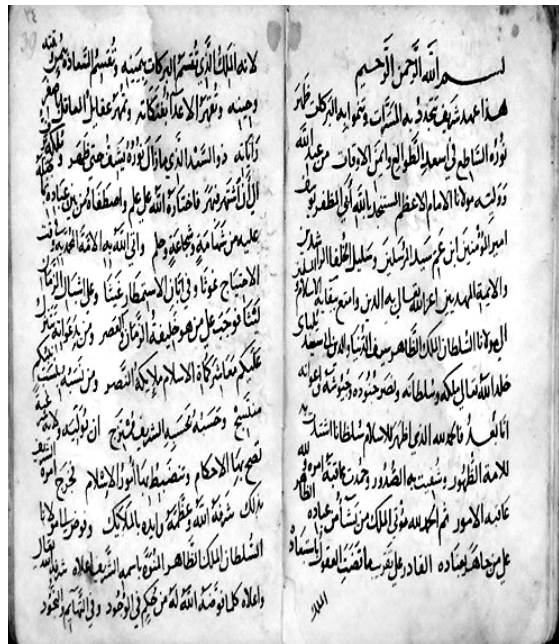 بسم الله الرحمن الرحيم
هذا عهد شريف تتجدد به المسرات وتنمو به البركات ظهر
نوره الساطع في سعد الطوالع وايمن الاوقات من عبد الله
ووليه مولانا الامام الاعظم المستنجد بالله ابي المظفر يوسف
امير المؤمنين ابن عم سيد المرسلين وسليل الخلفا الراشدين
والايمة المهديين اعز الله تعالى به الدين وامتع ببقايه الاسلام
الى مولانا السلطان الملك الظاهر سيف الدنيا والدين
خلد الله تعالى ملكه وسلطانه ونصر جنوده وجيوشه واعوانه
اما بعد فالحمد لله الذي اظهر للاسلام سلطانا
للامة الظهور وشفيت به الصدور وحمدت عاقبة امره ولله
عاقبة الامور ثم الحمد لله مؤتي الملك من يشا من عباده
على من جاهد بعباده القادر على تقريب ما قضت العقول باستبعاده
لانه الملك الذي تقسم البركات بيمينه وتقسم السعادة
وجبينه وتقهر الاعدا بفتكاته وتمهر عقايل المعاقل
راياته ذو السعد الذي ما زال نوره يشف حتى ظهر
الى ان اشتهر فبهر فاختاره الله على علم واصطفاه من بين عباده
عليه من شهامة وشجاعة وحلم واتى الله به الامة المحمدية في وقت
الاحتياج عونا وفي ابان الاستمطار غيثا وعلى اشبال
ليثا فوجب على من هو خليفة الزمان والعصر ومن بدعواته تتنزل
عليكم معاشر كماة الاسلام ملايكة النصر ومن نسبه
منتسج وحسبه بحسبه الشريف ممتزج ان يوليه ولاية
تصح بها الاحكام وتنضبط بها امور الاسلام فخرج
بذلك شرفه الله وعظمه وايده بالملايكة وفوض الى مولانا
السلطان الملك الظاهر المنوه باسمه الشريف اعلاه
واعلاه كلما فوضه الله له من حكم في الوجود وفي التهايم والنجود